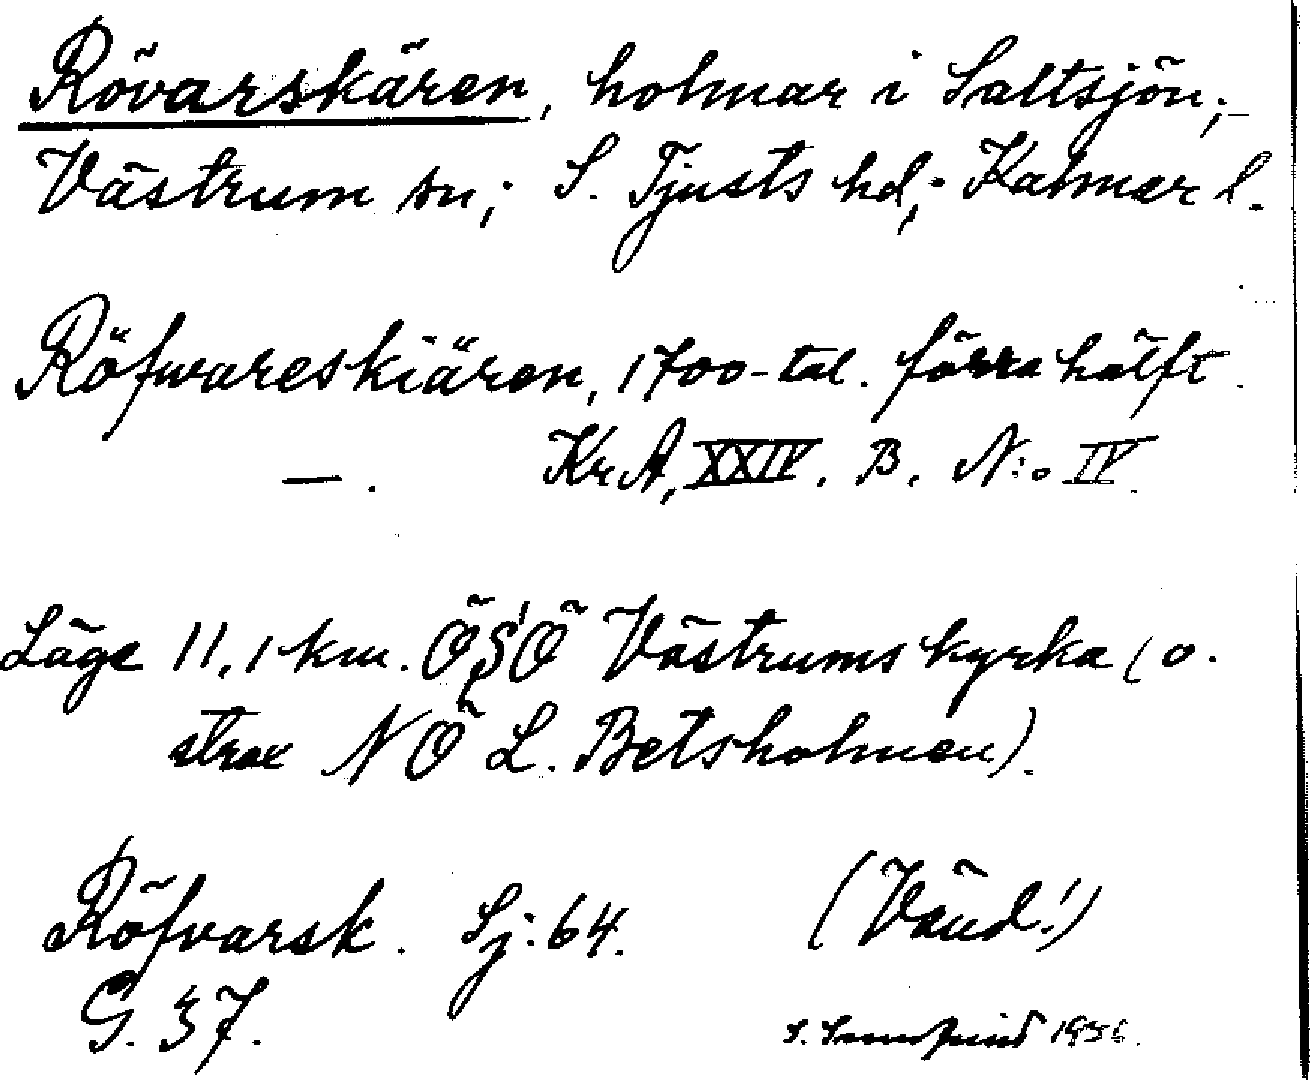 Rövarskären, holmar i Saltsjön;
Västrum sn; S. Tjusts hd; Kalmar l.
Röfwareskiären, 1700-tal. förra hälft.
—. KrA, XXIV. B. N:o IV.
Läge 11,1 km. ÖSÖ Västrums kyrka (o.
strax NÖ L. Betsholmen).
Röfvarsk. Sj: 64. (Vänd!)
G. 37.
S. 1956.